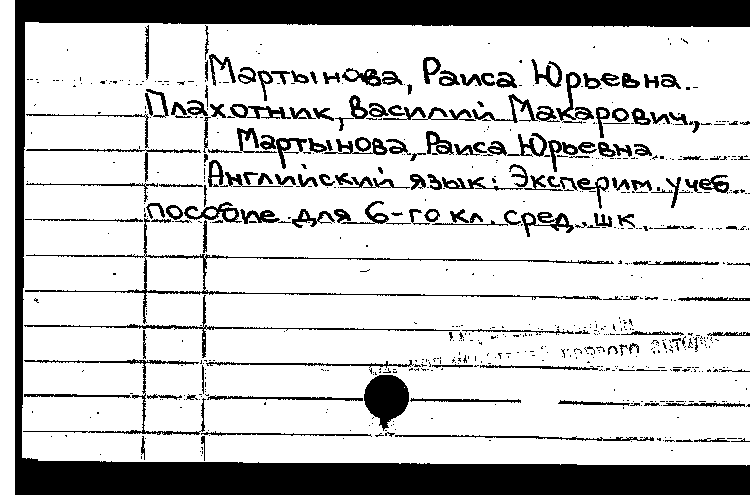 Мартынова, Раиса Юрьевна.
Плахотник, Василий Макарович,
Мартынова, Раиса Юрьевна
Английский язык: Эксперим. учеб
пособие для 6-го кл. сред. шк.
первого автора